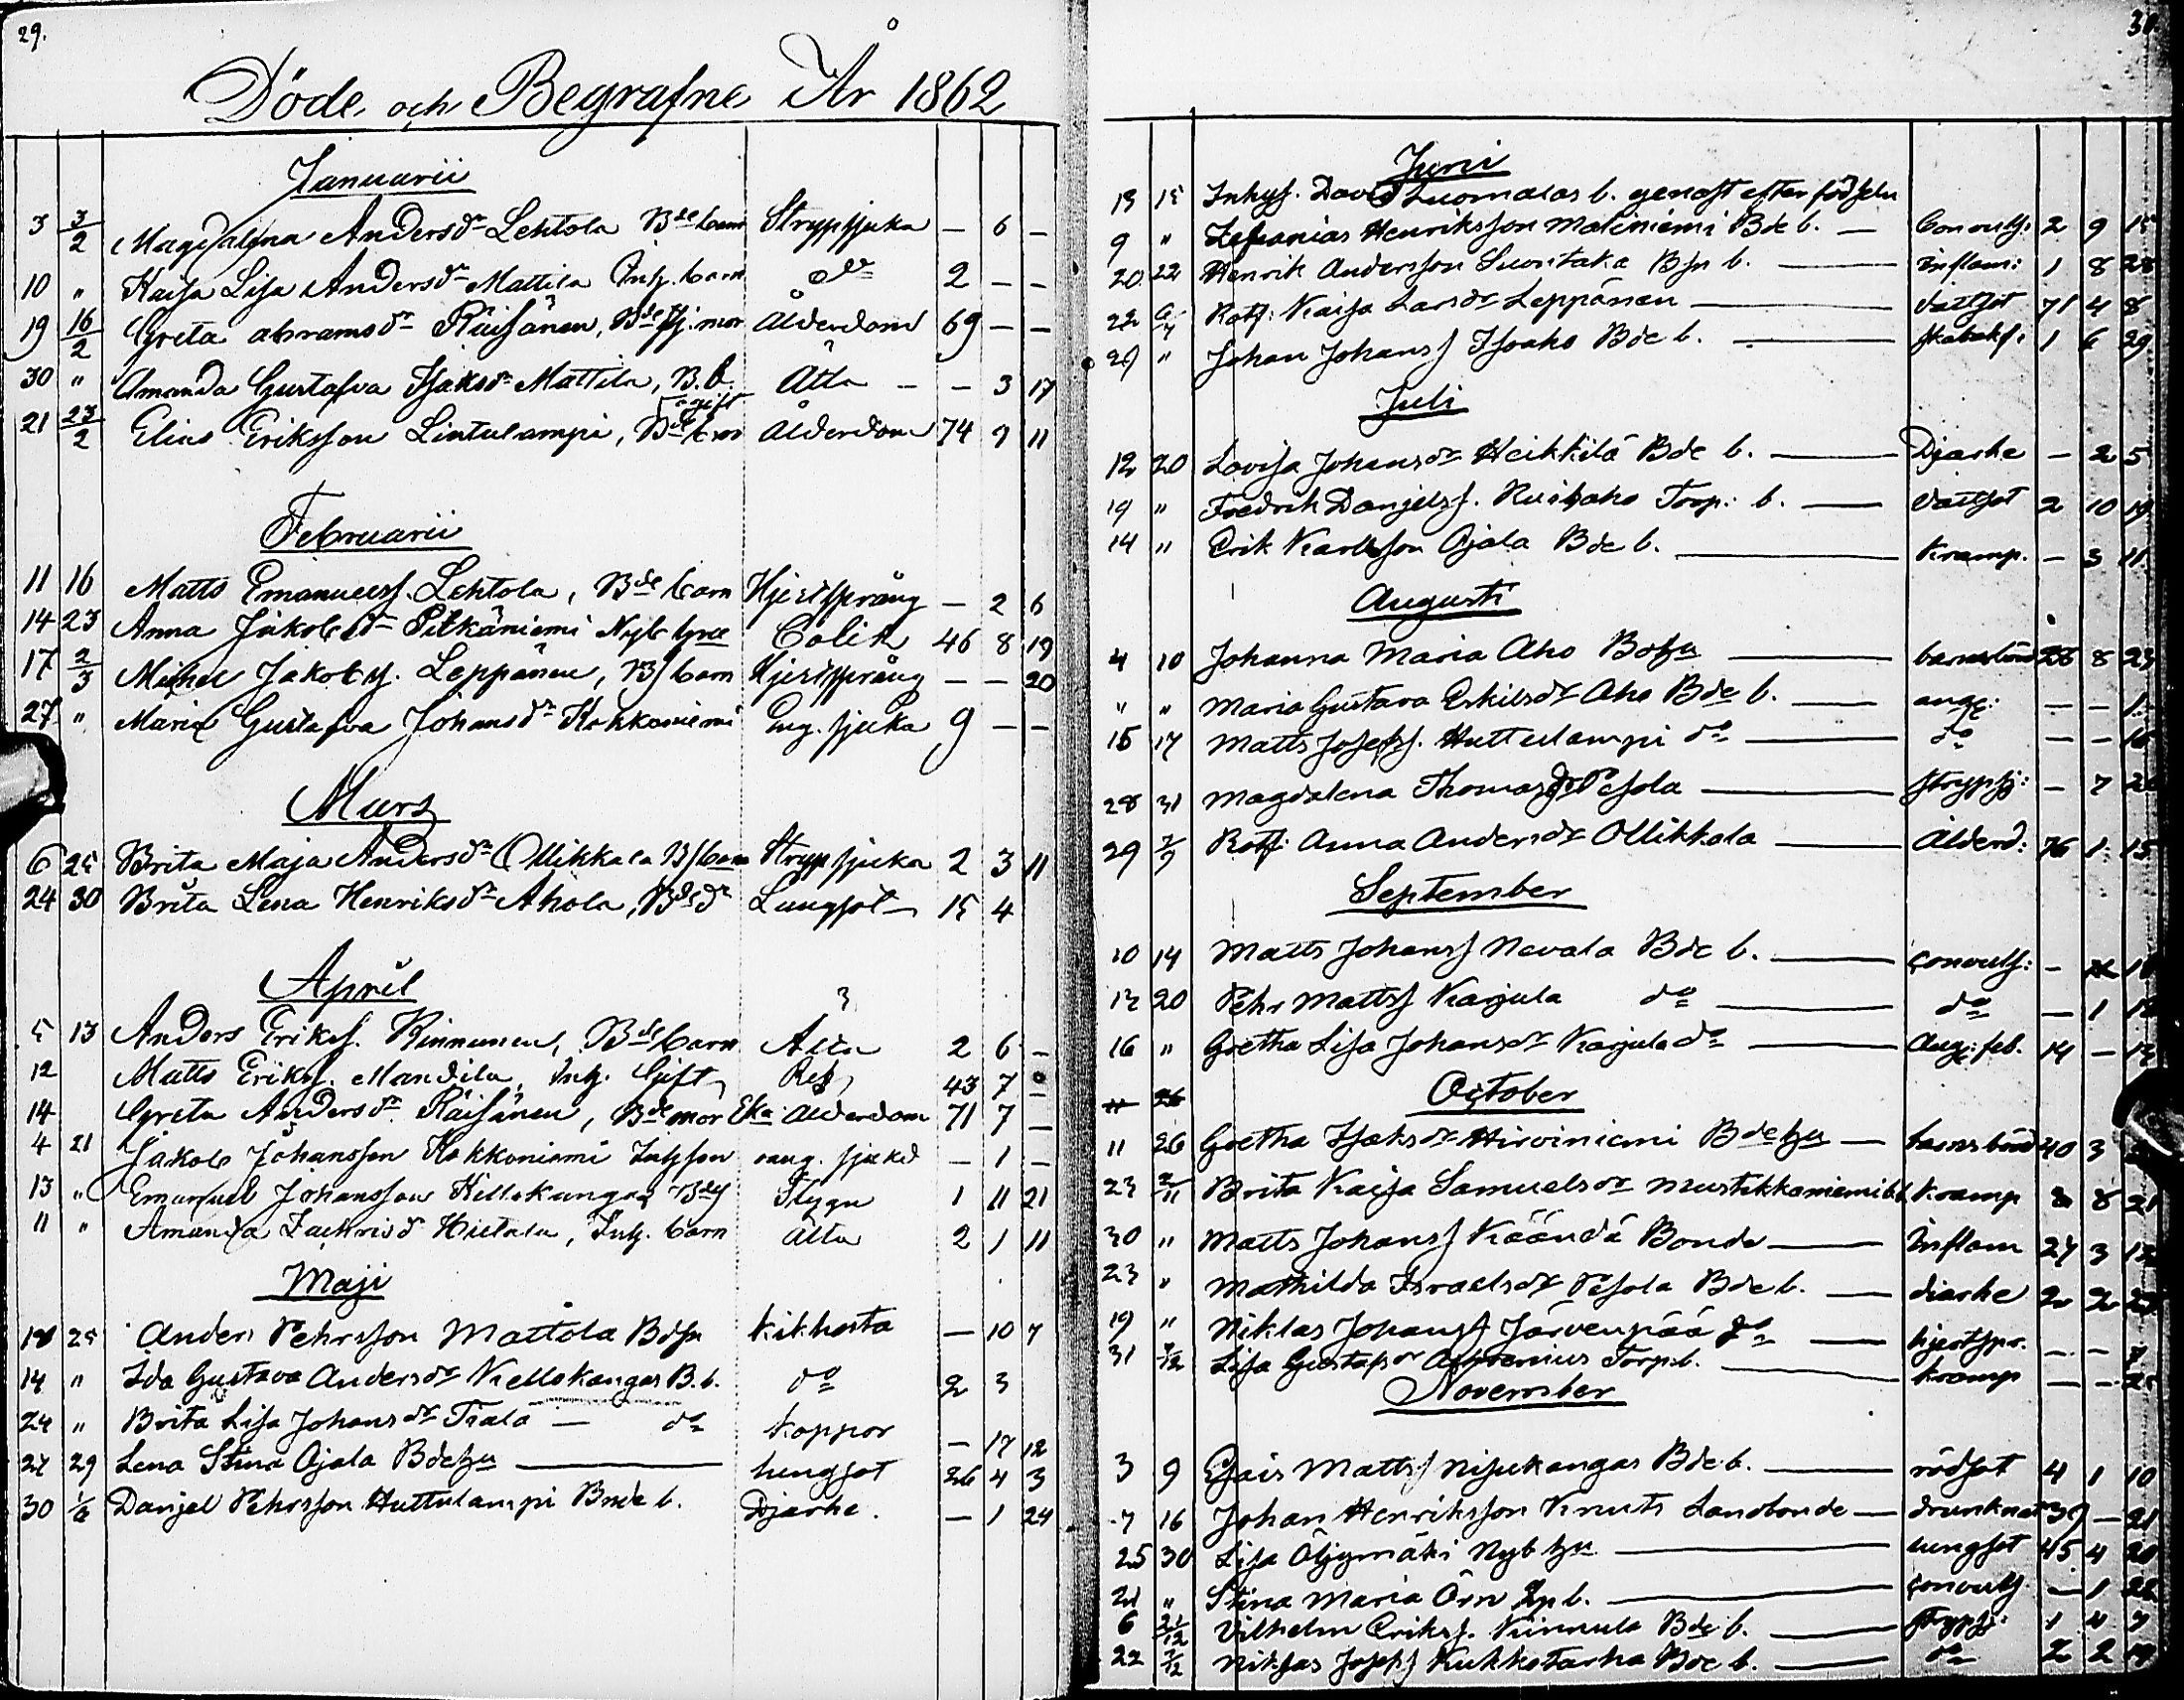 29.
Döde och Begrafne År 1862
Januarii
3 3/2 Magdalena Andersdr Lehtola Bde barn Strypsjuka — 6 —
10 " Kaisa Lisa Andersdr Mattila Inh. barn do 2 — —
19 16/2 Greta Abramsdr Räisänen, Bde mor Ålderdom 69 — —
30 " Amanda Gustafva Isaksdr Mattila, B. b. Älta — — 3 17
21 23/2 Elias Eriksson Lintulampi, Ålderdom 74 9 11
Februarii
11 16 Matts Emanuelss. Lehtola, Bde barn Hjertsprång — 2 6
14 23 Anna Jakobsdr Pitkäniemi Nyb hru Colik 46 8 19
17 2/3 Michel Jakobss. Leppänen, Bs barn Hjertsprång — — 20
27 " Maria Gustafva Johansdr Kokkoniemi Eng. sjuka 9 — —
Mars
6 25 Brita Maja Andersdr Ollikkala Bs barn Strypsjuka 2 3 11
24 30 Brita Lena Henriksdr Ahola, Bdedr Lungsot 15 4
April
5 13 Anders Erikss. Kinnunen, Bde barn Älta 2 6 —
12 Matts Erikss. Mandila, Inh. Gift 43 7 —
14 Greta Andersdr Räisänen, Bde mor Eka Ålderdom 71 7 —
4 21 Jakob Johansson Kokkoniemi Inhson sjukd — 1 —
13 " Emanuel Johansson Kellokangas Bds Flygn 1 11 21
11 " Amanda Zachrisdr Hietala, Inh. barn Älta 2 1 11
Maji
18 25 Anders Pehrsson Mattola Bdsn Kikhosta — 10 7
14 " Ida Gustava Andersdr Kellokangas B. b. do 2 3
24 " Brita Lisa Johansdr Tiala — do Koppor — 17 12
27 29 Lena Stina Ojala Bdehu — lungsot 26 4 3
30 1/6 Danjel Pehrsson Huttulampi Bnde b. Djarhe. — 1 24
30.
Juni
13 15 Inhys. David Luomalas b. genast efter födseln
9 " Zefanias Henriksson Matiniemi Bde b. — Convuls: 2 9 15
20 22 Henrik Andersson Suontaka Bsn b. — Inflam: 1 8 28
22 Rotf: Kaisa Larsdr Leppänen — vattsot 71 4 8
29 " Johan Johanss Isoaho Bde b. — 1 6 29
Juli
12 20 Lovisa Johansdr Heikkilä Bde b. — Djarhe — 2 5
19 " Fredrik Danjelss. Kuisaho Torp: b. — vattsot 2 10 19
14 " Erik Karlsson Ojala Bde b. — Kramp. — 3 11
Augusti
4 10 Johanna Maria Aho Bdhu — barnsbörd 26 8 23
" " Maria Gustava Eskilsdr Aho Bde b. — ange: — — 1
15 17 Matts Josefss. Huttulampi do — do — — 16
28 31 Magdalena Thomasdr Pesola — strypsj: — 7
29 7/9 Rotf: Anna Andersdr Ollikkala — Ålderd: 76 1 15
September
10 14 Matts Johanss Nevala Bde b. — convuls: —
12 20 Pehr Mattss Karjula do — do — 1
16 " Gretha Lisa Johansdr Karjula do — feb. 14 —
October
11 26
11 26 Gretha Isaksdr Hirviniemi Bdehu — barnsbörd 40 3
23 2/11 Brita Kaisa Samuelsdr Mustikkaniemi Kramp 8 21
30 " Matts Johanss Käändä Bonde — Inflam 27 3 13
23 " Mathilda Israelsdr Pesola Bde b. — diarhe 2 2
19 " Niklas Johanss Järvenpää do — hjertspr. — —
31 7/12 Lisa Gustafsdr Torp.b. — kramp — — 25
November
3 9 Esais Mattss Nisukangas Bde b. — rödsot 4 1 10
7 16 Johan Henriksson Knuts Landbonde — drunknat 39 — 21
25 30 Lisa Öljymäki Nyb hu — lungsot 45 4 20
21 " Stina Maria Örn b. — convuls. — 1 22
6 21/12 Vilhelm Erikss. Kinnula Bde b. — strypsj: 1 4 7
22 7/12 Niklas Josefss Kukkotarha Bde b. — do 2 2 19